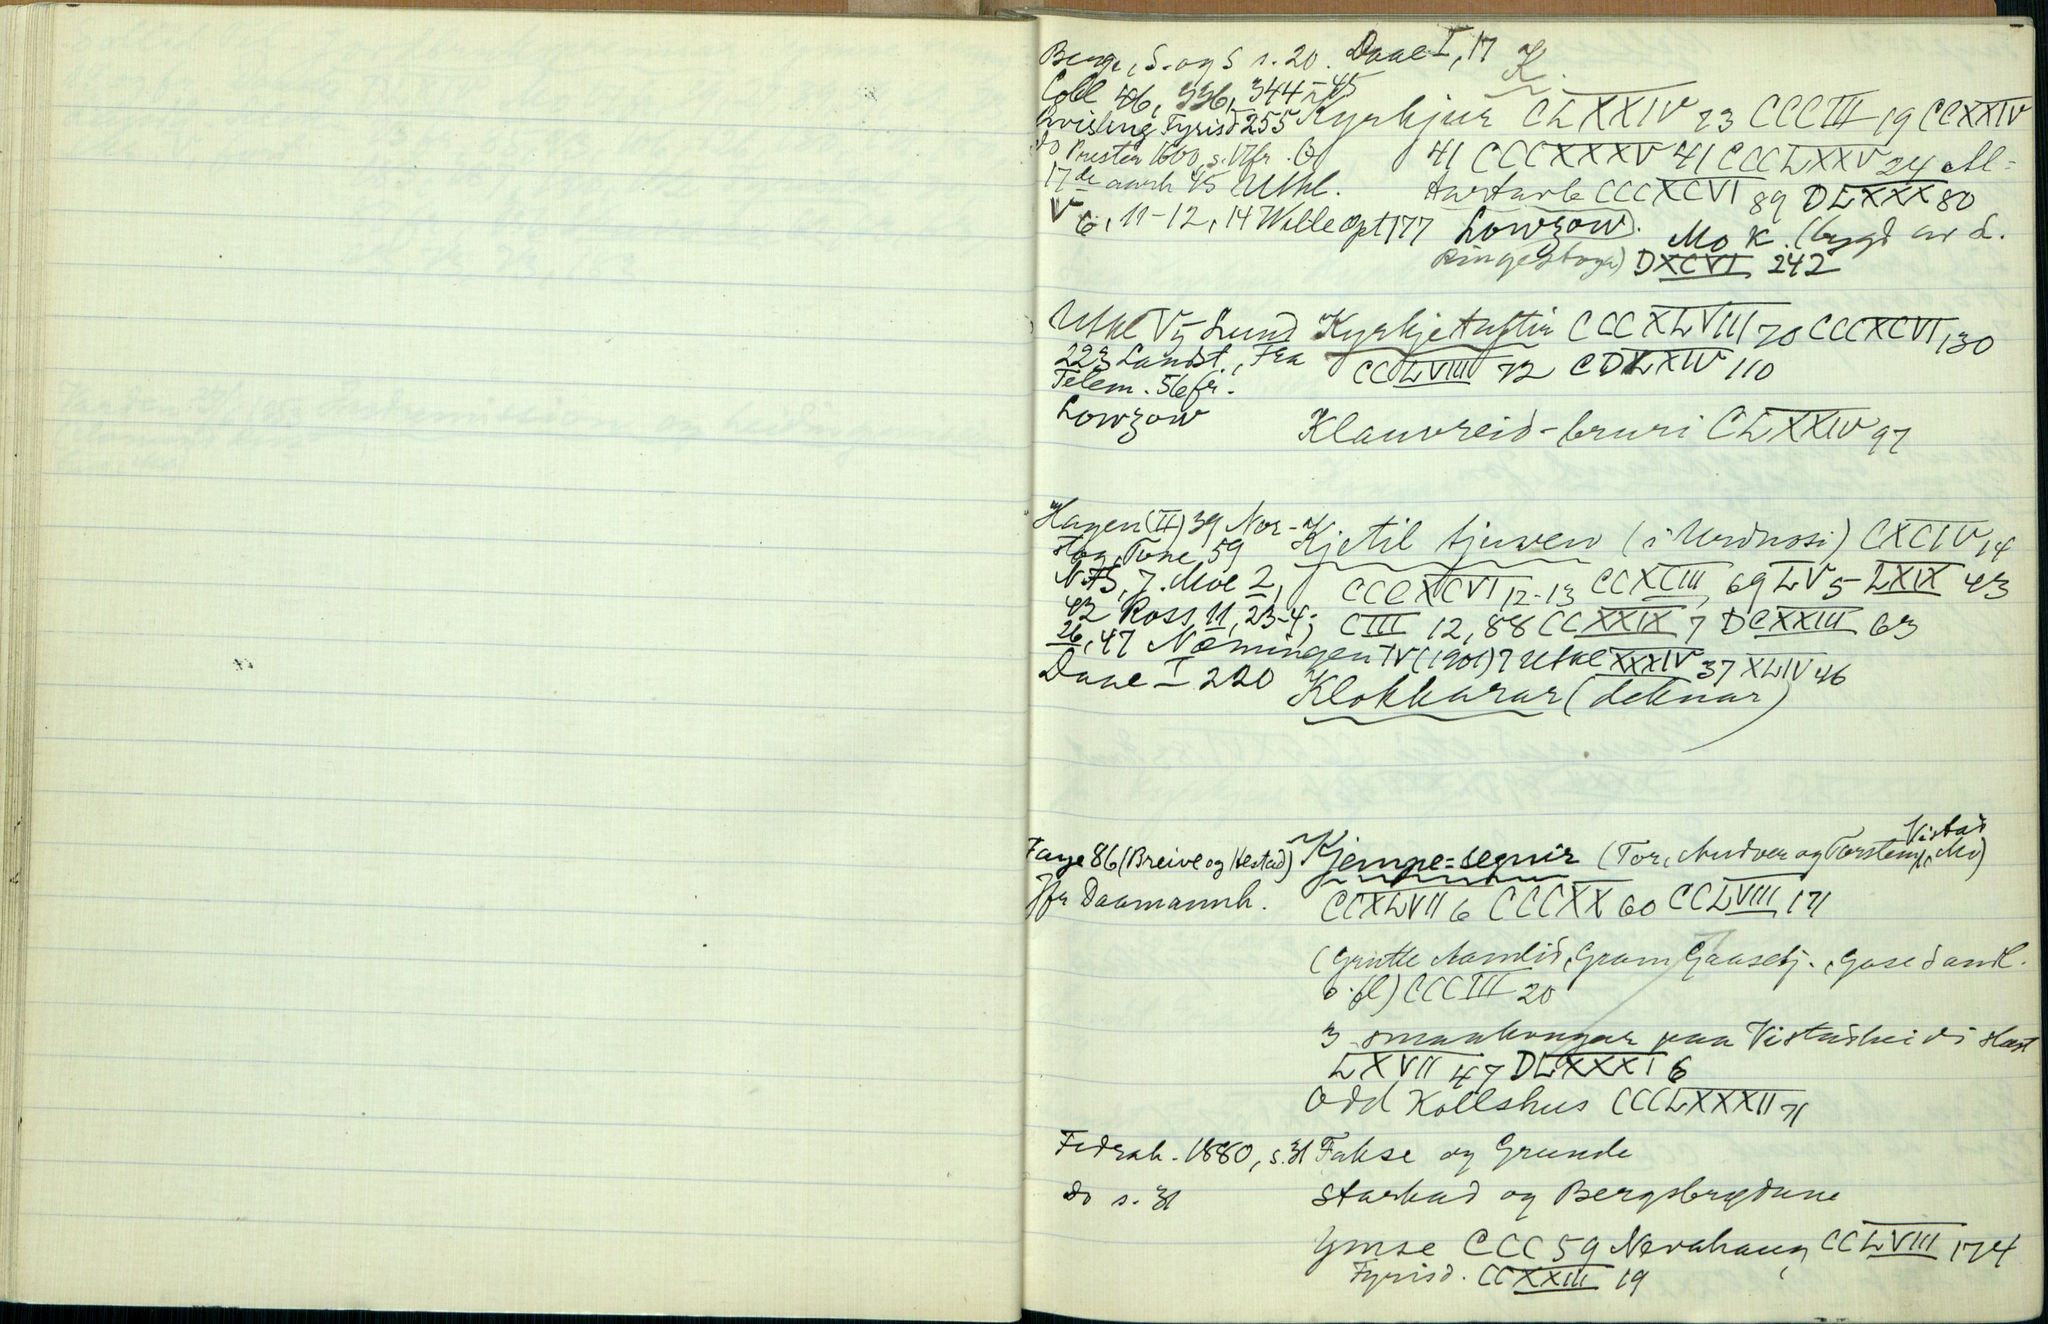 Berge, S. og S s. 20. Daae I, 17 K.
Coll 46, 336, 344-45
Kvisling Fyrisd 255 Kyrkjur CLXXIV 23 CCCIII 19 CCXXIV
do Prester 1600, s. 17 fr. 41 CCCXXXV 41 CCCLXXV 24 Al-
17de aarh 45 Utkl. tartavle CCCXCVI 89 DLXXX 80
V 6, 11-12, 14 Wille Opt 177 Lowzow). Mo K. (bygd av L.
Ringestoga) DXCVI 242
Utkl V 5 Lund Kyrkjetuftir CCCXLVIII 70 CCCXCVI 130
223 Landst., Fra CCLVIII 72 CDLXIV 110
Telem. 56 fr.
Lowzow Klauvreid-bruri CLXXIV 97
Hagen (II) 39 Nor- Kjetil tjuven (i Urdnosi) CXCIV, 14
stog, Tone 59
NFS, J. Moe 2, CCCXCVI 12-13 CCXCIII, 69 LV 5- LXIX 43
42 Ross 11, 23-4; CIII 12, 88 CCXXIX 7 DCXXIII 63
26, 47 Næmningen IV (1901) 7 Utkl XXXIV 37 XLIV 46
Daae I 220 Klokkarar (deknar)
Vistad
Faye 86 (Breive og Hestad) Kjempe-segnir (Tor, Audver og Torstein, Mo)
Jfr Daamannh. CCXLVII 6 CCCXX 60 CCLVIII 171
(Grutle Aamlid, Gram Gaasebj., Gase Sandl.
o. fl) CCCIII 20
3 smaakongar paa Vistadheidi
LXVII 47 DLXXXI 6
Odd Kollshus CCCLXXXII 71
Fedrah. 1880, s. 31 Fakse og Grunde
do s. 31 Starkad og Bergsbygdane
Ymse CCC 59 Nevahaug CCLVIII 174
Fyrisd. CCXXIII 19